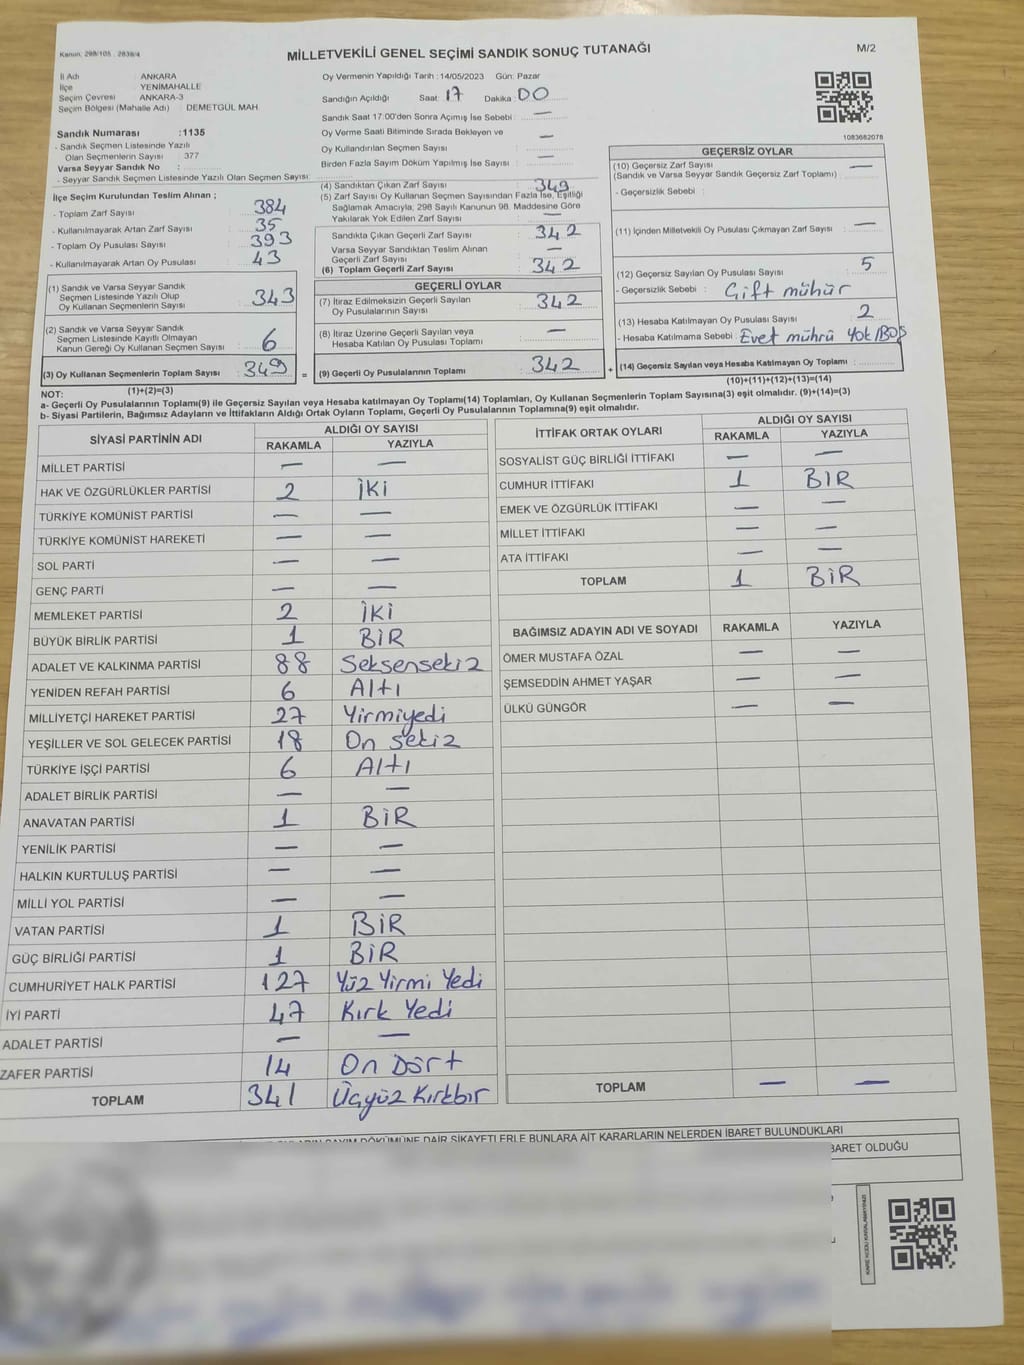 Kanun: 298/105 , 2839/4
MİLLETVEKİLİ GENEL SEÇİMİ SANDIK SONUÇ TUTANAĞI
M/2
İl Adı : ANKARA
İlçe : YENİMAHALLE
Seçim Çevresi : ANKARA-3
Seçim Bölgesi (Mahalle Adı) : DEMETGÜL MAH.
Sandık Numarası :1135
- Sandık Seçmen Listesinde Yazılı
Olan Seçmenlerin Sayısı : 377
Varsa Seyyar Sandık No :
- Seyyar Sandık Seçmen Listesinde Yazılı Olan Seçmen Sayısı:
Oy Vermenin Yapıldığı Tarih :14/05/2023 Gün: Pazar
Sandığın Açıldığı Saat: 17 Dakika: 00
Sandık Saat 17:00'den Sonra Açılmış İse Sebebi : —
Oy Verme Saati Bitiminde Sırada Bekleyen ve
Oy Kullandırılan Seçmen Sayısı : —
Birden Fazla Sayım Döküm Yapılmış İse Sayısı : —
1083682078
İlçe Seçim Kurulundan Teslim Alınan ;
- Toplam Zarf Sayısı : 384
- Kullanılmayarak Artan Zarf Sayısı : 35
- Toplam Oy Pusulası Sayısı : 393
- Kullanılmayarak Artan Oy Pusulası : 43
(1) Sandık ve Varsa Seyyar Sandık
Seçmen Listesinde Yazılı Olup
Oy Kullanan Seçmenlerin Sayısı : 343
(2) Sandık ve Varsa Seyyar Sandık
Seçmen Listesinde Kayıtlı Olmayan
Kanun Gereği Oy Kullanan Seçmen Sayısı : 6
(3) Oy Kullanan Seçmenlerin Toplam Sayısı : 349
(1)+(2)=(3)
(4) Sandıktan Çıkan Zarf Sayısı : 349
(5) Zarf Sayısı Oy Kullanan Seçmen Sayısından Fazla İse, Eşitliği
Sağlamak Amacıyla, 298 Sayılı Kanunun 98. Maddesine Göre
Yakılarak Yok Edilen Zarf Sayısı : —
Sandıkta Çıkan Geçerli Zarf Sayısı : 342
Varsa Seyyar Sandıktan Teslim Alınan
Geçerli Zarf Sayısı : —
(6) Toplam Geçerli Zarf Sayısı : 342
GEÇERLİ OYLAR
(7) İtiraz Edilmeksizin Geçerli Sayılan
Oy Pusulalarının Sayısı : 342
(8) İtiraz Üzerine Geçerli Sayılan veya
Hesaba Katılan Oy Pusulası Toplamı : —
= (9) Geçerli Oy Pusulalarının Toplamı : 342
GEÇERSİZ OYLAR
(10) Geçersiz Zarf Sayısı : —
(Sandık ve Varsa Seyyar Sandık Geçersiz Zarf Toplamı)
- Geçersizlik Sebebi :
(11) İçinden Milletvekili Oy Pusulası Çıkmayan Zarf Sayısı : —
(12) Geçersiz Sayılan Oy Pusulası Sayısı : 5
- Geçersizlik Sebebi : Çift mühür
(13) Hesaba Katılmayan Oy Pusulası Sayısı : 2
- Hesaba Katılmama Sebebi : Evet mührü Yok/BOŞ
+ (14) Geçersiz Sayılan veya Hesaba Katılmayan Oy Toplamı :
(10)+(11)+(12)+(13)=(14)
NOT:
a- Geçerli Oy Pusulalarının Toplamı(9) ile Geçersiz Sayılan veya Hesaba katılmayan Oy Toplamı(14) Toplamları, Oy Kullanan Seçmenlerin Toplam Sayısına(3) eşit olmalıdır. (9)+(14)=(3)
b- Siyasi Partilerin, Bağımsız Adayların ve İttifakların Aldığı Ortak Oyların Toplamı, Geçerli Oy Pusulalarının Toplamına(9) eşit olmalıdır.
SİYASİ PARTİNİN ADI ALDIĞI OY SAYISI
RAKAMLA YAZIYLA
MİLLET PARTİSİ — —
HAK VE ÖZGÜRLÜKLER PARTİSİ 2 İKİ
TÜRKİYE KOMÜNİST PARTİSİ — —
TÜRKİYE KOMÜNİST HAREKETİ — —
SOL PARTİ — —
GENÇ PARTİ — —
MEMLEKET PARTİSİ 2 İKİ
BÜYÜK BİRLİK PARTİSİ 1 BİR
ADALET VE KALKINMA PARTİSİ 88 Seksensekiz
YENİDEN REFAH PARTİSİ 6 Altı
MİLLİYETÇİ HAREKET PARTİSİ 27 Yirmiyedi
YEŞİLLER VE SOL GELECEK PARTİSİ 18 On sekiz
TÜRKİYE İŞÇİ PARTİSİ 6 Altı
ADALET BİRLİK PARTİSİ — —
ANAVATAN PARTİSİ 1 BİR
YENİLİK PARTİSİ — —
HALKIN KURTULUŞ PARTİSİ — —
MİLLİ YOL PARTİSİ — —
VATAN PARTİSİ 1 BİR
GÜÇ BİRLİĞİ PARTİSİ 1 BİR
CUMHURİYET HALK PARTİSİ 127 Yüz Yirmi Yedi
İYİ PARTİ 47 Kırk Yedi
ADALET PARTİSİ — —
ZAFER PARTİSİ 14 On Dört
TOPLAM 341 Üçyüz Kırkbir
İTTİFAK ORTAK OYLARI ALDIĞI OY SAYISI
RAKAMLA YAZIYLA
SOSYALİST GÜÇ BİRLİĞİ İTTİFAKI — —
CUMHUR İTTİFAKI 1 BİR
EMEK VE ÖZGÜRLÜK İTTİFAKI — —
MİLLET İTTİFAKI — —
ATA İTTİFAKI — —
TOPLAM 1 BİR
BAĞIMSIZ ADAYIN ADI VE SOYADI RAKAMLA YAZIYLA
ÖMER MUSTAFA ÖZAL — —
ŞEMSEDDİN AHMET YAŞAR — —
ÜLKÜ GÜNGÖR — —
TOPLAM — —
SAYIM DÖKÜMÜNE DAİR ŞİKAYETLERLE BUNLARA AİT KARARLARIN NELERDEN İBARET BULUNDUKLARI
İBARET OLDUĞU
KARE KODU KARALAMAYINIZ!